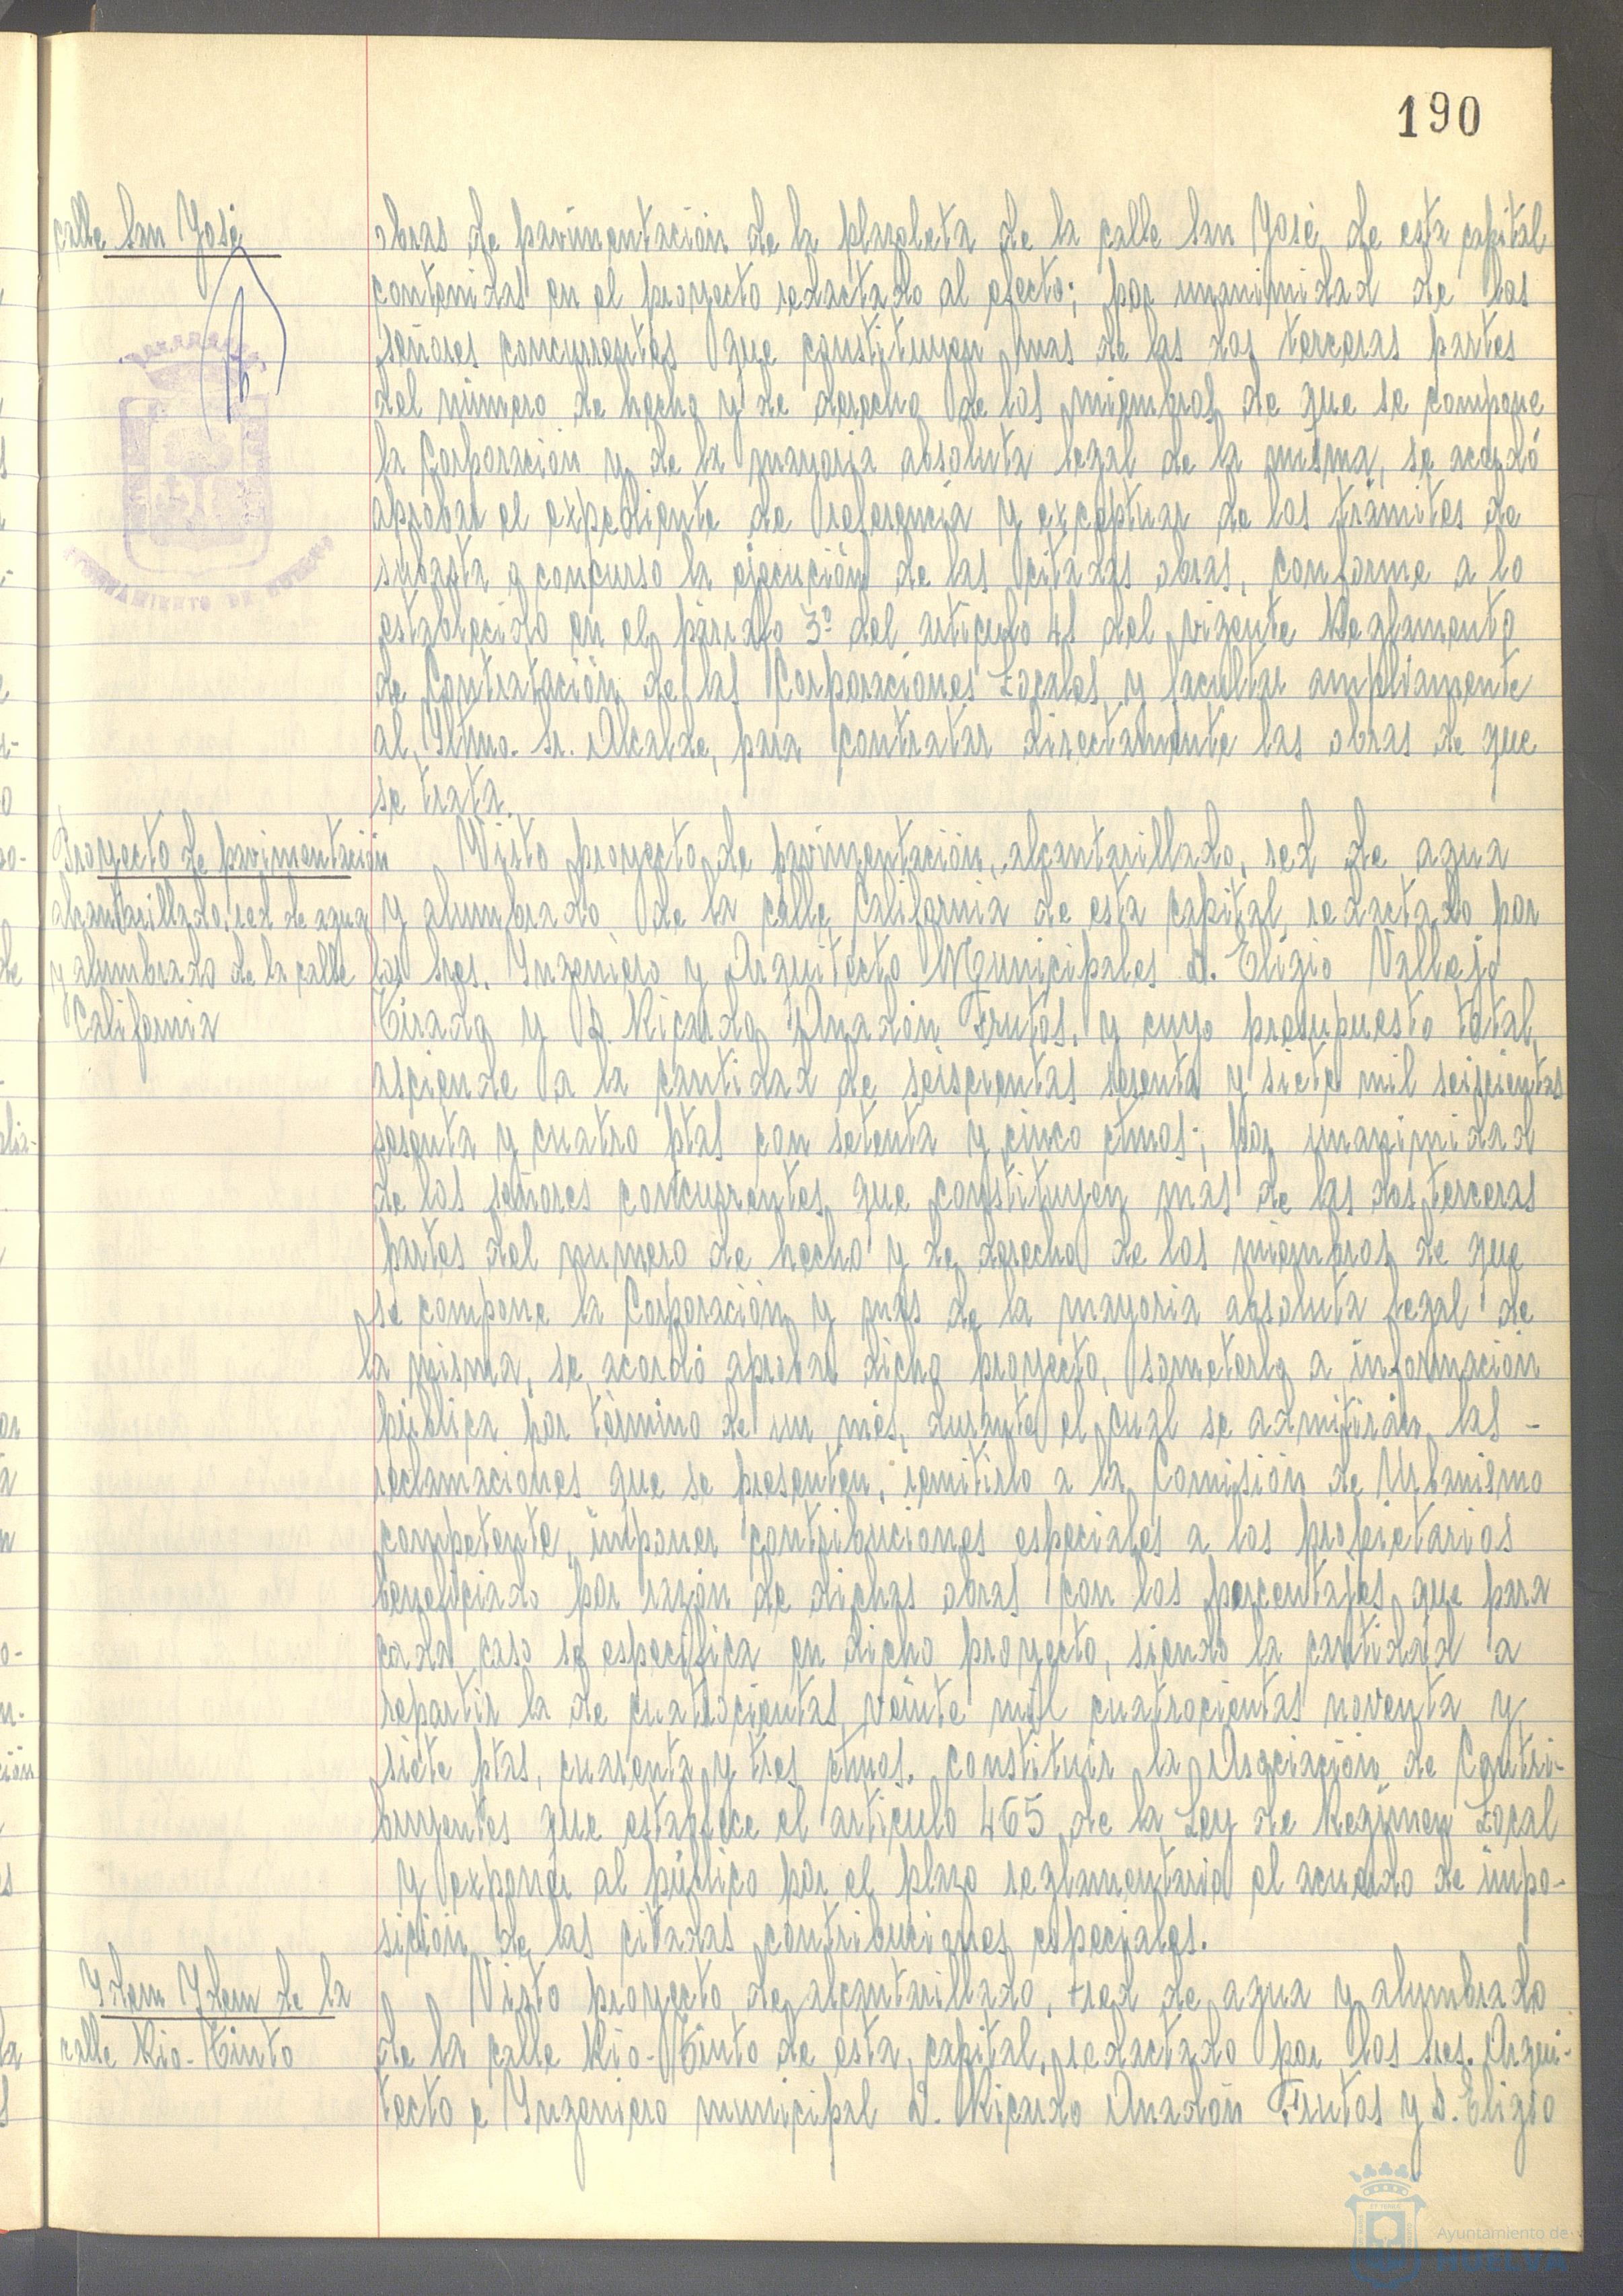 190
calle San José
obras de pavimentación de la plazoleta de la calle San José de esta capital
contenidas en el proyecto redactado al efecto; por unanimidad de los
señores concurrentes que constituyen mas de las dos terceras partes
del número de hecho y de derecho de los miembros de que se compone
la Corporación y de la mayoria absoluta legal de la misma, se acordó
aprobar el expediente de referencia y exceptuar de los trámites de
subasta o concurso la ejecución de las citadas obras, conforme a lo
establecido en el párrafo 3º del artículo 41 del vigente Reglamento
de Contratación de las Corporaciones Locales y facultar ampliamente
al Iltmo. Sr. Alcalde, para contratar directamente las obras de que
se trata.
Proyecto de pavimentación
alcantarillado, red de agua
y alumbrado de la calle
California
Visto proyecto de pavimentación, alcantarillado, red de agua
y alumbrado de la calle California de esta capital, redactado por
los Sres. Ingeniero y Arquitecto Municipales D. Eligio Vallejo
Tirado y D. Ricardo Anadón Frutos, y cuyo presupuesto total
asciende a la cantidad de seiscientas sesenta y siete mil seiscientas
sesenta y cuatro ptas con setenta y cinco ctmos; por unanimidad
de los señores concurrentes que constituyen mas de las dos terceras
partes del numero de hecho y de derecho de los miembros de que
se compone la Corporación y mas de la mayoria absoluta legal de
la misma, se acordó aprobar dicho proyecto, someterlo a información
pública por término de un mes, durante el cual se admitirán las -
reclamaciones que se presenten, remitirlo a la Comisión de Urbanismo
competente, imponer contribuciones especiales a los propietarios
beneficiado por razón de dichas obras con los porcentajes que para
cada caso se especifica en dicho proyecto, siendo la cantidad a
repartir la de cuatrocientas veinte mil cuatrocientas noventa y
siete ptas, cuarenta y tres ctmos. constituir la Asociación de Contri-
buyentes que establece el artículo 465 de la Ley de Regimen Local
y exponer al público por el plazo reglamentario el acuerdo de impo-
sición de las citadas contribuciones especiales.
Idem Idem de la
calle Rio-Tinto
Visto proyecto de alcantarillado, red de agua y alumbrado
de la calle Rio-Tinto de esta capital, redactado por los Sres. Arqui-
tecto e Ingeniero municipal D. Ricardo Anadón Frutos y D. Eligio
Ayuntamiento de
HUELVA